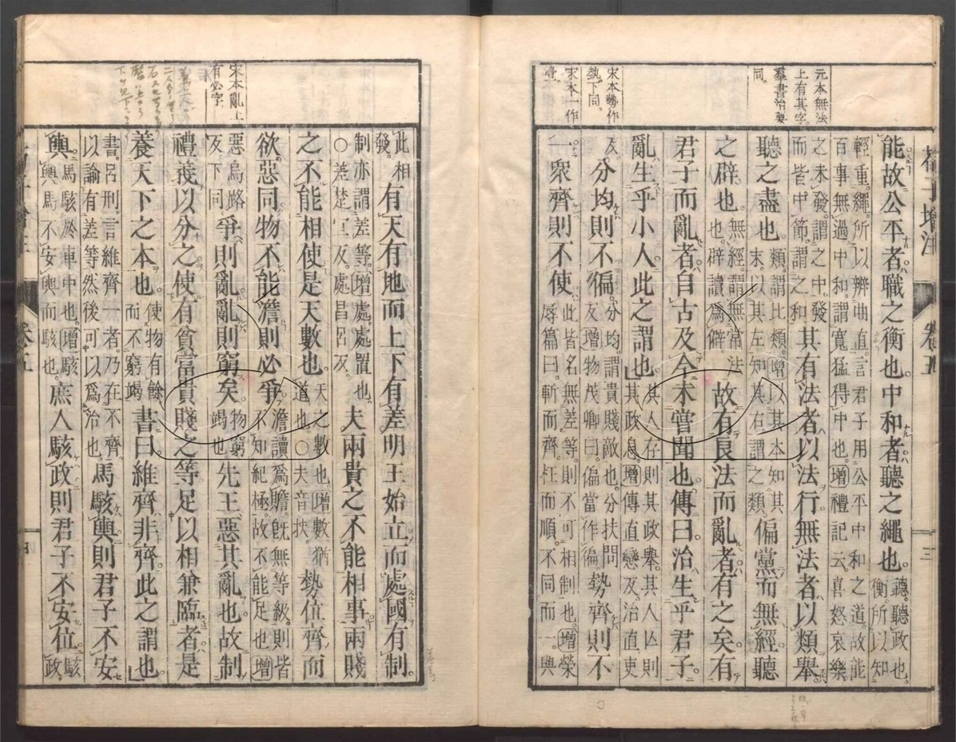 元本無法
上有其字
羣書治要
同
宋本勢作
埶下同
宋本一作
壹
荀子增注
卷五
三
能故公平者職之衡也中和者聽之繩也聽聽政也
衡所以知
輕重繩所以辨曲直言君子用公平中和之道故能
百事無過中和謂寬猛得中也增禮記云喜怒哀樂
之未發謂之中發
而皆中節謂之和其有法者以法行無法者以類舉
聽之盡也類謂比類增以其本知其
末以其左知其右謂之類偏黨而無經聽
之辟也無經謂無常法
也辟讀爲僻故有良法而亂者有之矣有
君子而亂者自古及今未嘗聞也傳曰治生乎君子
亂生乎小人此之謂也其人存則其政舉其人亾則
其政息增傳直戀反治直吏
反分均則不偏分均謂貴賤敵也分扶問
反增物茂卿曰偏當作徧勢齊則不
一衆齊則不使此皆名無差等則不可相制也增榮
辱篇曰斬而齊枉而順不同而一與
宋本亂上
有必字
此相
發有天有地而上下有差明王始立而處國有制
制亦謂差等增處處置也
○差楚宜反處昌呂反夫兩貴之不能相事兩賤
之不能相使是天數也天之數也增數猶
道也○夫音扶勢位齊而
欲惡同物不能澹則必爭澹讀爲贍旣無等級則皆
不知紀極故不能足也增
惡烏路
反下同爭則亂亂則窮矣物窮
竭也先王惡其亂也故制
禮義以分之使有貧富貴賤之等足以相兼臨者是
養天下之本也使物有餘
而不窮竭書曰維齊非齊此之謂也
書呂刑言維齊一者乃在不齊
以諭有差等然後可以爲治也馬駭輿則君子不安
輿馬駭於車中也增駭
輿馬不安輿而駭也庶人駭政則君子不安位駭
政
卷五
四